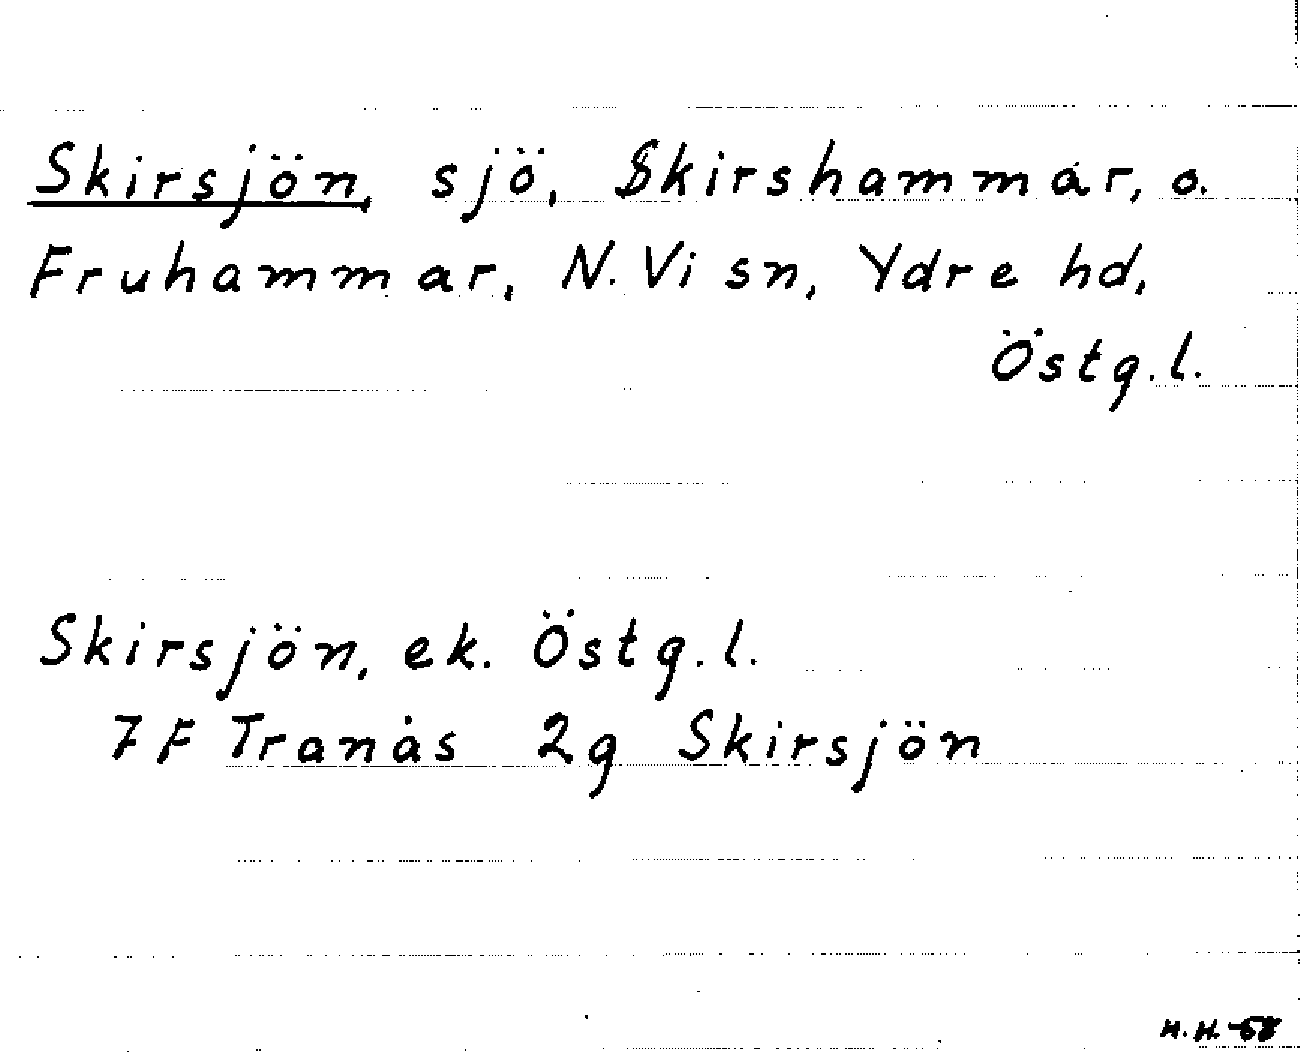 Skirsjön, sjö, Skirshammar, o.
Fruhammar, N. Vi sn, Ydre hd,
Östg. l.
Skirsjön, ek. Östg. l.
7 F Tranås 2g Skirsjön
H.H. -58